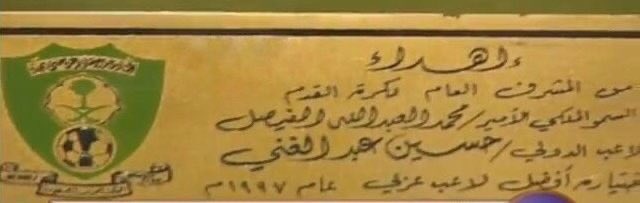 اهداء
من المشرف العام لكرة القدم
السمو الملكي الأمير/محمد العبدالله الفيصل
لاعب الدولي/حسين عبد الغني
ختياره أفضل لاعب عربي عام ١٩٩٧م